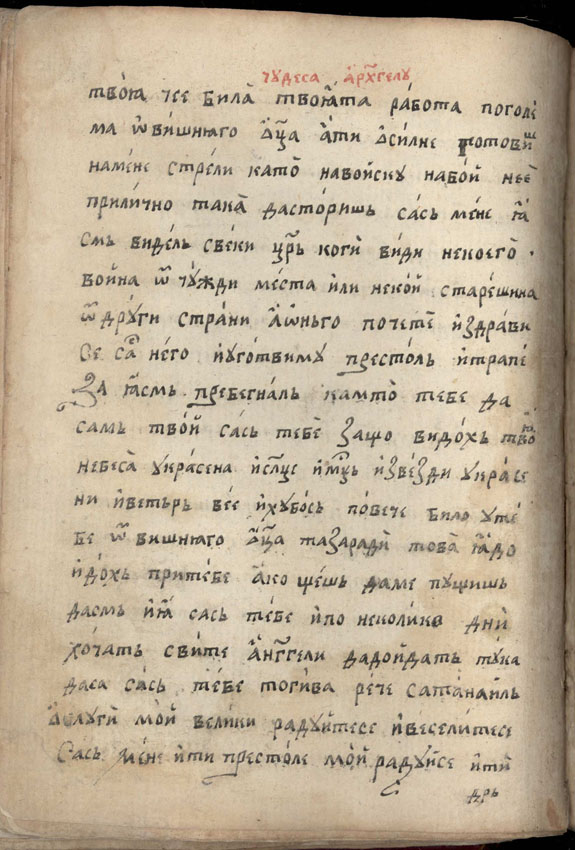 чꙋдеса а҆рх҃гелꙋ
твоѧ̀ чее била̀ твоѧ̀та ра́бота поголѐ
ма ѿвишнꙗго ѻ҆ц҃а а҆ти ѻ҆силне готовишъ
намѐне стрели като̀ навойскꙋ набо́й неѐ
прили́чно така̀ дасто́ришь са́сь мѐне ꙗ҆̀
смь видѐль свѐки цр҃ь когѝ ви́ди некоего̀
война ѿ чꙋ́жди мѐста и҆ли неко́й старе́шина
ѿ дрꙋ́ги стра́ни а҆ѡ́ньго почетѐ и҆здра́ви
се са̀ него и҆ꙋго́твимꙋ престо́ль и҆трапѐ
за ꙗ҆̀смь пребегна́ль камто̀ тебе да
самь тво́й сась тебѐ защо видо́хь твоѧ̀
небеса̀ ꙋкра́сена и҆сл҃це и҆мц҃ь и҆звѐзди ꙋкра́се
ни и҆вѐтьрь вее и҆хꙋ́бось по́вече било ꙋте́
бе ѿ вишнꙗго ѻ҆ц҃а тазарадѝ това̀ ꙗ҆̀до
и҆до́хь притѐбе а҆́ко щѐшь да́ме пꙋщишь
дасмь и҆ꙗ҆̀ сась тѐбе и҆по неколико дни̇
хо́чать свѝте а҆́нгг҃ели дадойдать тꙋка
даса са́сь тѐбе тоги́ва рѐче сатана́иль
ѻ҆слꙋгѝ мо́й велѝки радꙋ́йтесе и҆веселѝтесе
сась мѐне и҆ти престо́ле мо́й радꙋ́йсе и҆тѝ
дрь